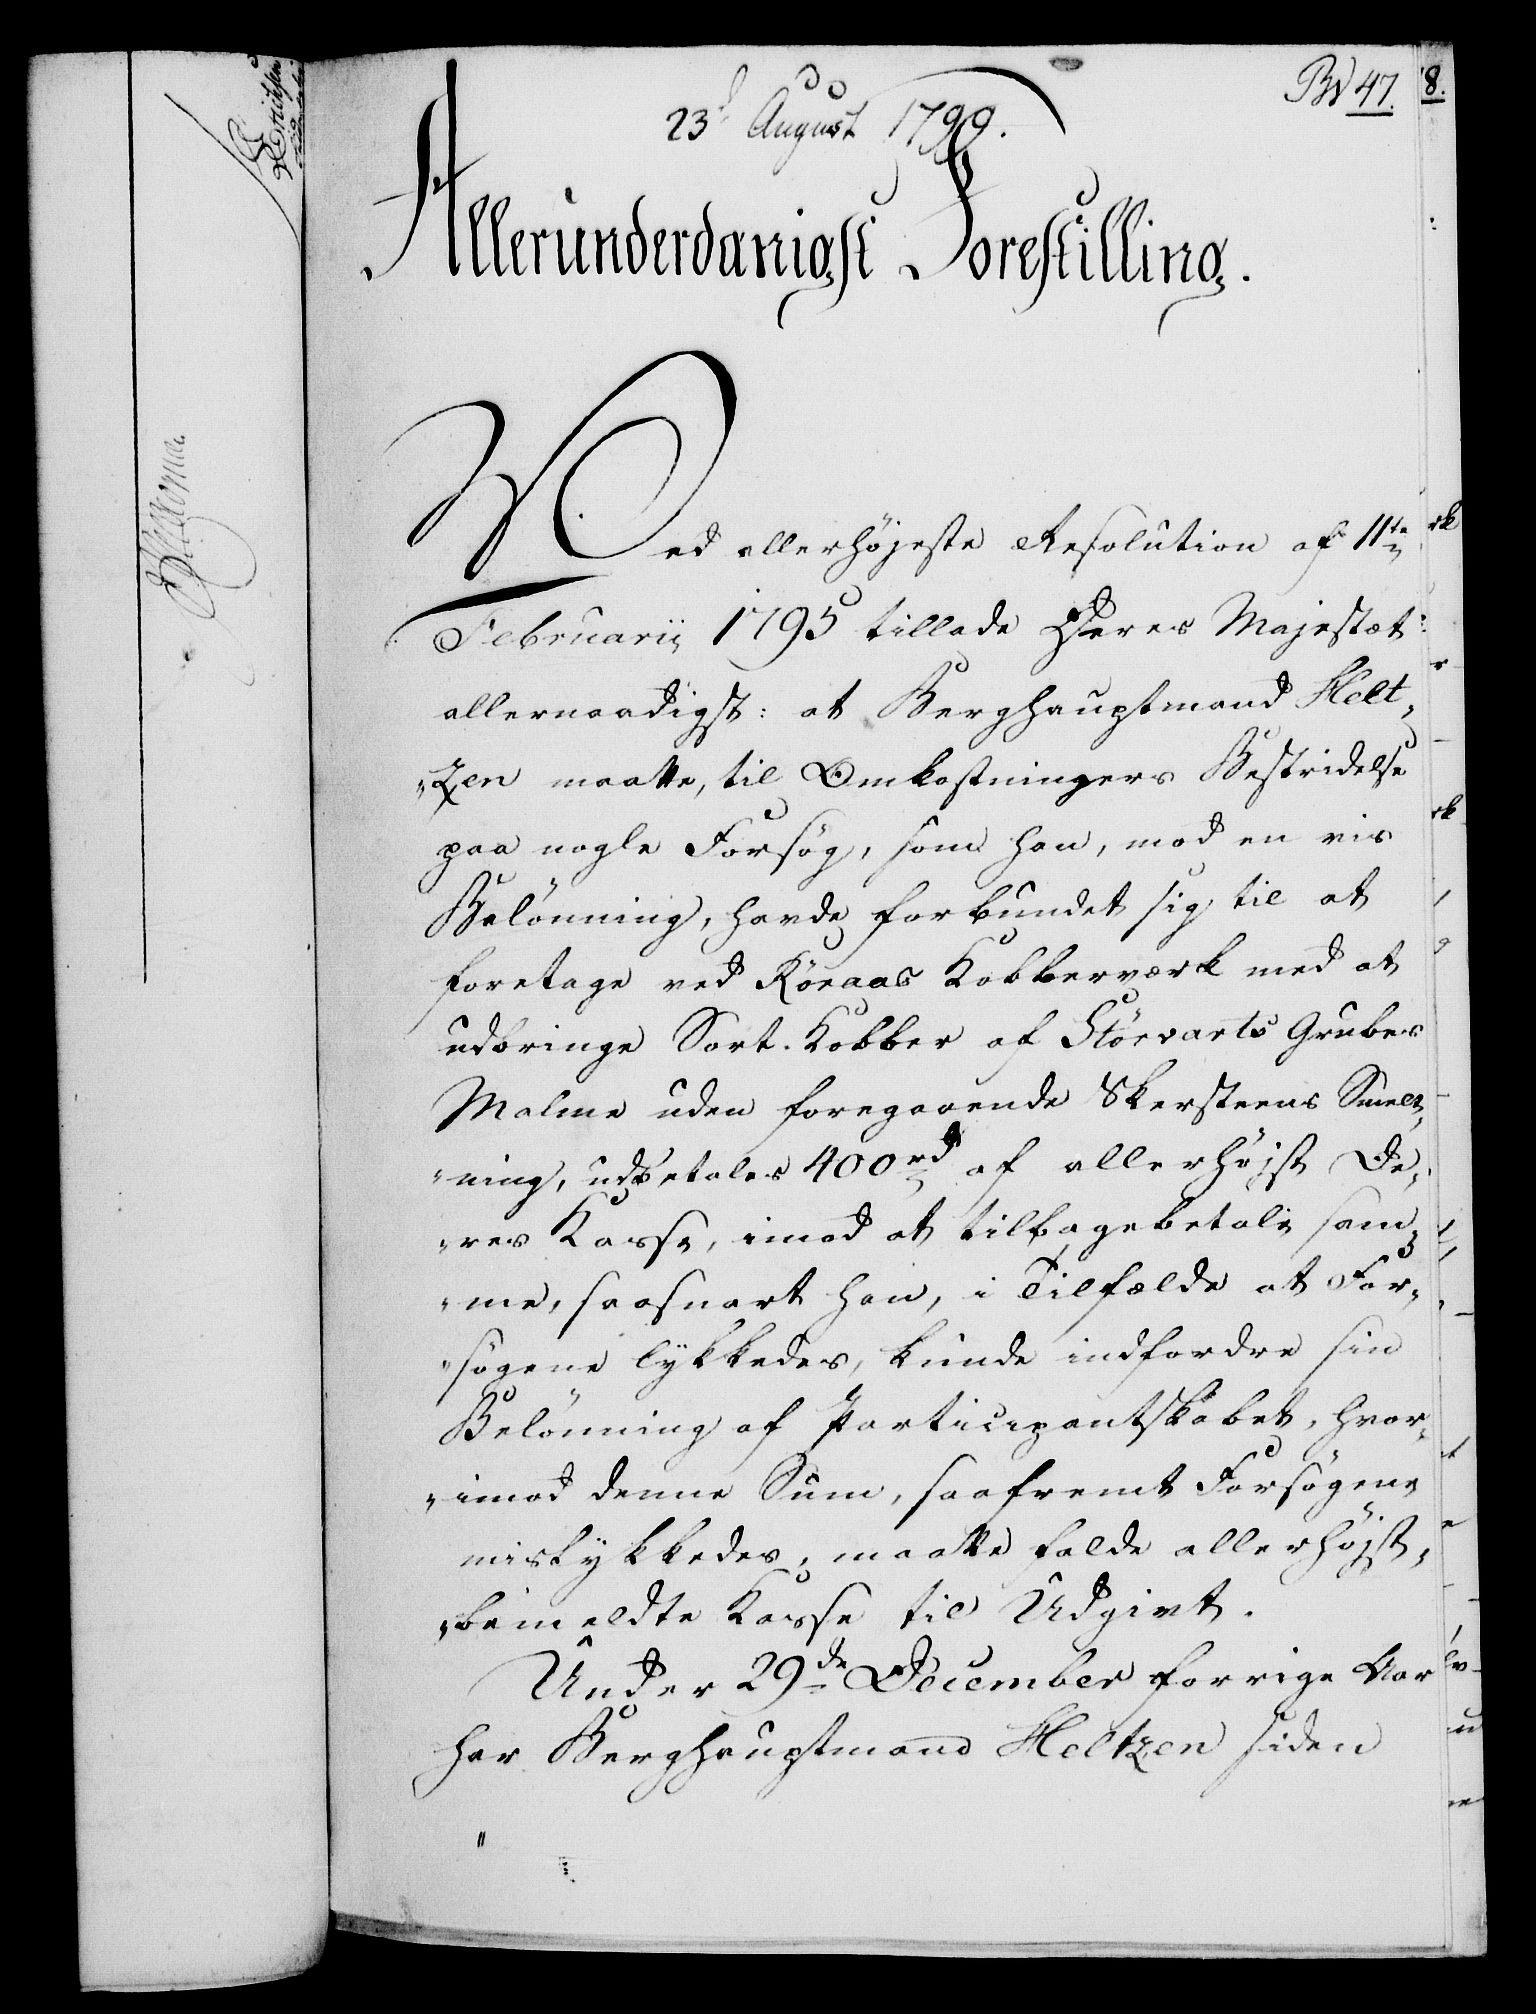 23d August 1799.
Bd 47.
8.
Allerunderdanigst Forestilling.
Ved allerhöjeste Resolution af 11te
Februarii 1795 tillode Deres Majestæt
allernaadigst: at Berghauptmand Helt„
„zen maatte, til Omkostningers Bestridelse
paa nogle Forsög, som han, mod en vis
Belönning, havde forbundet sig til at
foretage ved Röraas Kobberværk med at
udbringe Sort-Kobber af Störvarts Grubes
Malme uden foregaaende Skersteens Smelt„
„ning, udbetales 400rd af allerhöjst De„
„res Kasse, imod at tilbagebetale sam„
„me, saasnart han, i Tilfælde at For„
„sögene lykkedes, kunde indfordre sin
Belönning af Participantskabet, hvor„
„imod denne Sum, saafremt Forsögene
mislykkedes, maatte falde allerhöjst„
„bemeldte Kasse til Udgivt.
Under 29de December forrige Aar
har Berghauptmand Heltzen siden